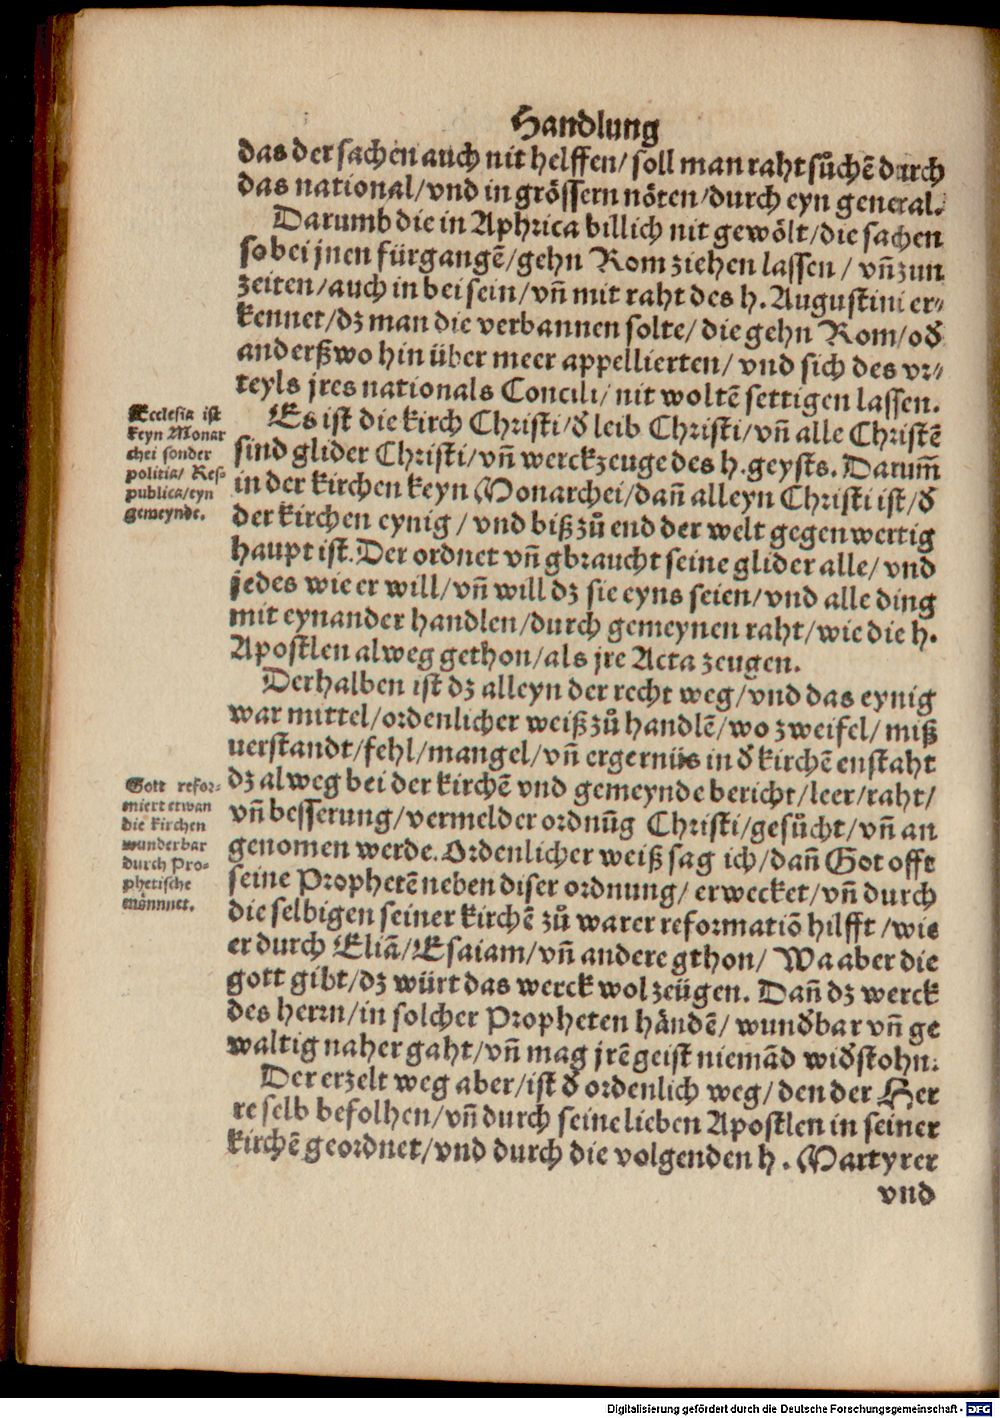 Handlung
das der sachen auch nit helffen/ soll man raht sůchē durch
das national/ vnd in grössern nöten/ durch eyn general.
Darumb die in Aphrica billich nit gewölt/ die sachen
so bei jnen fürgangē/ gehn Rom ziehen lassen/ vn̄ zun
zeiten/ auch in bei sein/ vn̄ mit raht des h. Augustini er⸗
kennet/ dz man die verbannen solte/ die gehn Rom/ oď
anderßwo hin über meer appellierten/ vnd sich des vr⸗
teyls jres nationals Concili/ nit woltē settigen lassen.
Es ist die kirch Christi/ ď leib Christi/ vn̄ alle Christē
sind glider Christi/ vn̄ werckzeuge des h. geysts. Darum̄
in der kirchen keyn Monarchei/ dan̄ alleyn Christi ist/ ď
der kirchen eynig/ vnd biß zů end der welt gegenwertig
haupt ist. Der ordnet vn̄ gbraucht seine glider alle/ vnd
jedes wie er will/ vn̄ will dz sie eyns seien/ vnd alle ding
mit eynander handlen/ durch gemeynen raht/ wie die h.
Apostlen alweg gethon/ als jre Acta zeugen.
Ecclesia ist
keyn Monar
chei sonder
politia/ Res⸗
publica/ eyn
gemeynde.
Derhalben ist dz alleyn der recht weg/ vnd das eynig
war mittel/ ordenlicher weiß zů handlē/ wo zweifel/ miß
uerstandt/ fehl/ mangel/ vn̄ ergernüs in ď kirchē enstaht
dz alweg bei der kirchē vnd gemeynde bericht/ leer/ raht/
vn̄ besserung/ vermelder ordnūg Christi/ gesůcht/ vn̄ an
genomen werde. Ordenlicher weiß sag ich/ dan̄ Got offt
seine Prophetē neben diser ordnung/ erwecket/ vn̄ durch
die selbigen seiner kirchē zů warer reformatiō hilfft/ wie
er durch Eliā/ Esaiam/ vn̄ andere gthon/ Wa aber die
gott gibt/ dz würt das werck wol zeügen. Dan̄ dz werck
des herrn/ in solcher Propheten händē/ wunďbar vn̄ ge
waltig naher gaht/ vn̄ mag jrē geist niemād wiďstohn.
Gott refor⸗
miert etwan
die kirchen
wunderbar
durch Pro⸗
phetische
männner.
Der erzelt weg aber/ ist ď ordenlich weg/ den der Her
re selb befolhen/ vn̄ durch seine lieben Apostlen in seiner
kirchē geordnet/ vnd durch die volgenden h. Martyrer
vnd
Digitalisierung gefördert durch die Deutsche Forschungsgemeinschaft - DFG